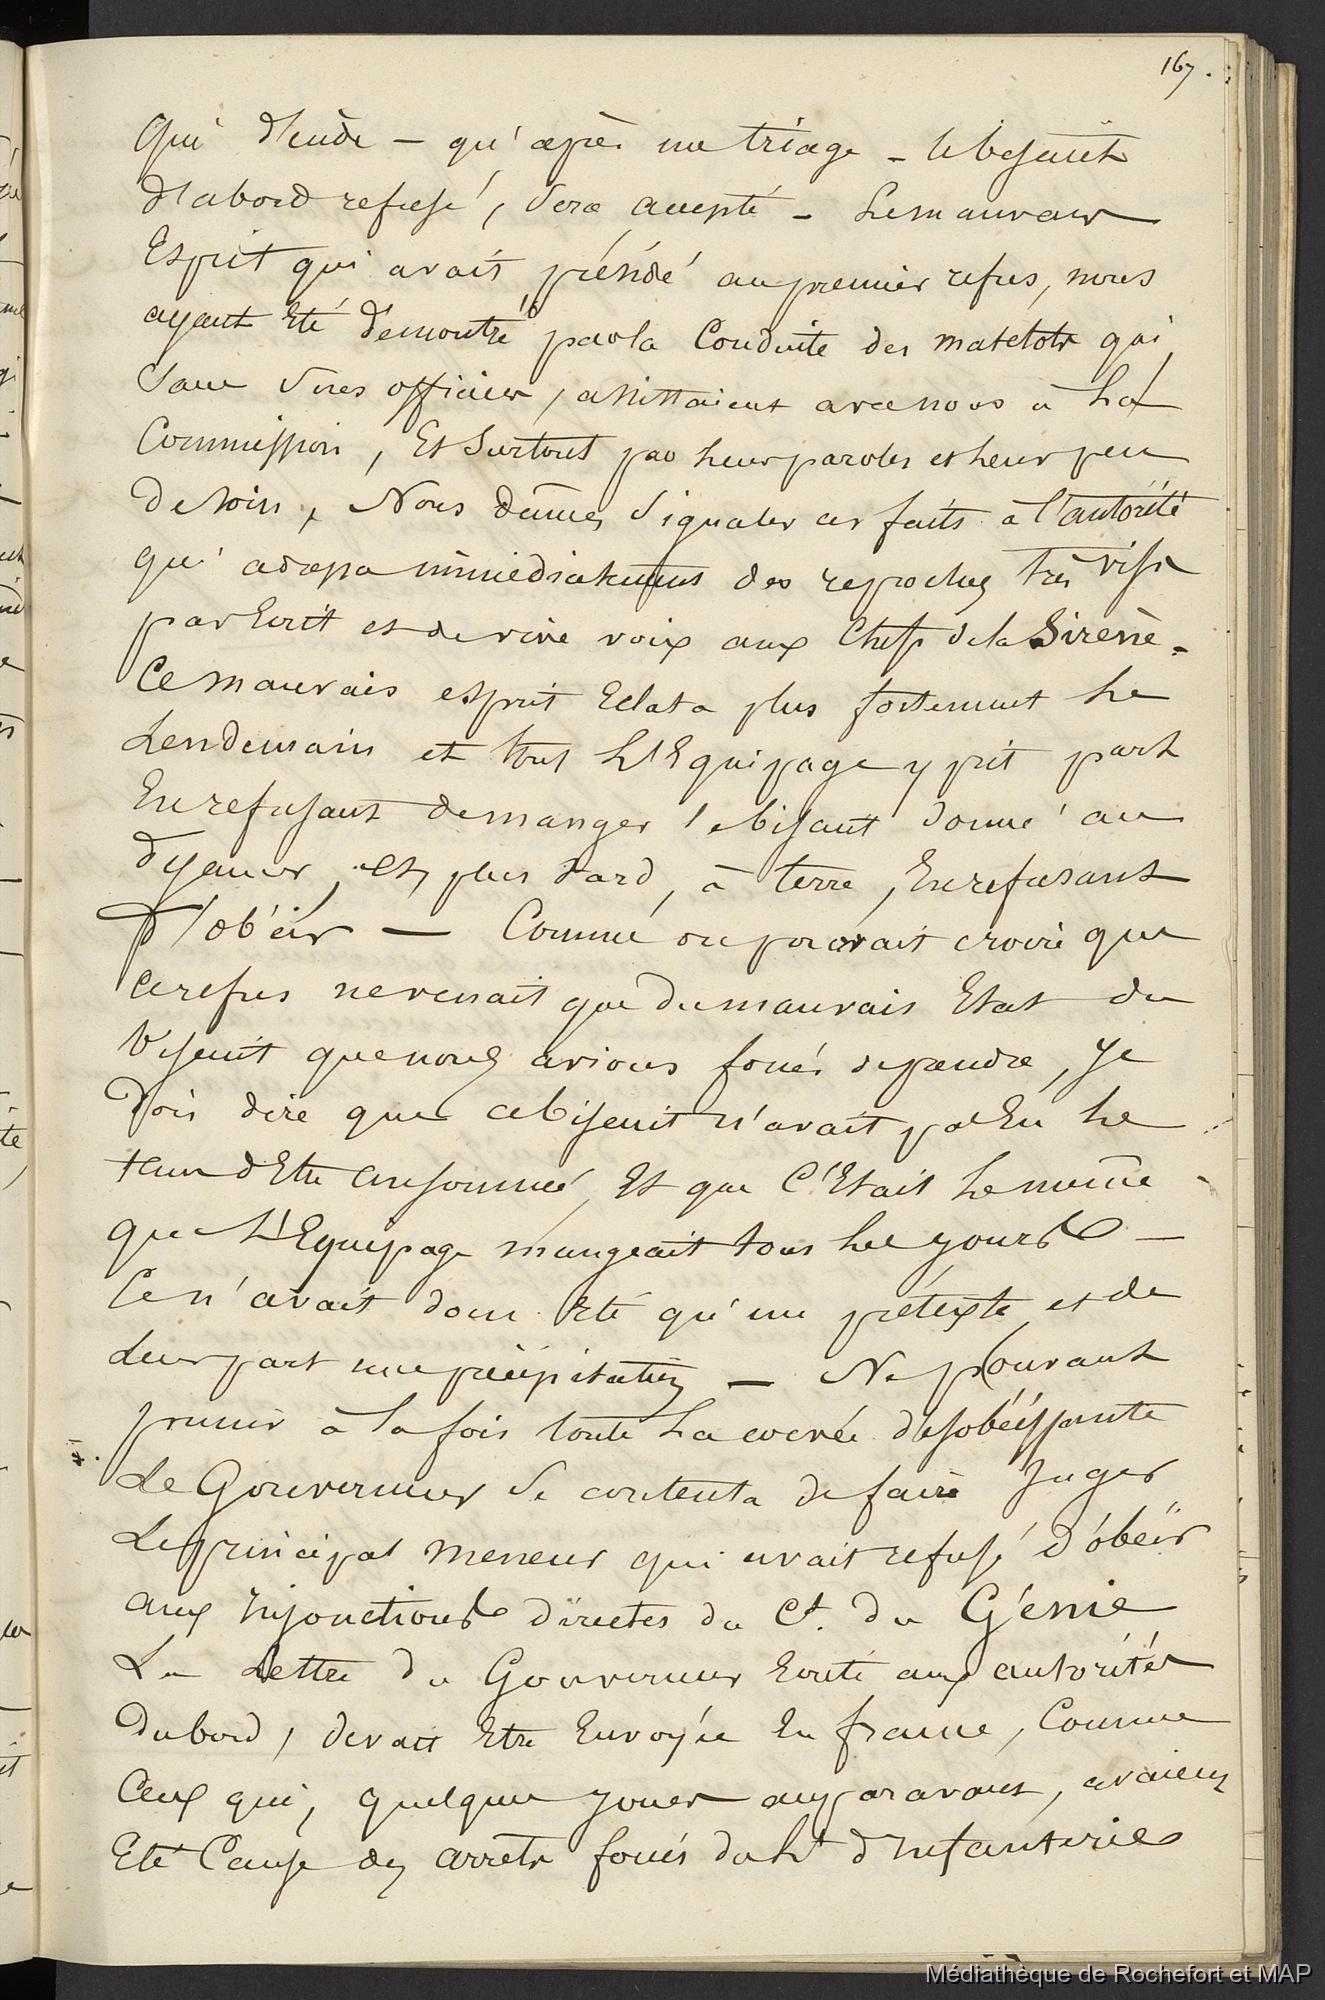 167.
qui décide – qu'après un triage – le biscuit
d'abord refusé, sera accepté – Le mauvais
Esprit qui avait présidé au premier refus, nous
ayant été démontré par la Conduite des matelots qui
sans Sires officier, assistaient avec nous à La
Commission, Et Surtout par Leurs paroles et Leur peu
de soin, Nous dûmes Signaler ces faits à l'autorité
qui adressa immédiatement des reproches très vifs
par Ecrit et de vive voix aux Chefs de la Sirène.
Ce mauvais esprit Eclata plus fortement Le
Lendemain et tout L'Equipage y prit part
En refusant de manger le biscuit donné au
déjeuner, et, plus tard, à terre, En refusant
d'obéir — Comme on pouvait croire que
ce refus ne venait que du mauvais Etat du
biscuit que nous avions forcés de prendre, Je
dois dire que ce biscuit n'avait pas Eu Le
tems d'Etre consommé, Et que C'Etait Le même
que L'Equipage mangeait tous Les jours —
Ce n'avait donc Eté qu'un prétexte et de
Leur part une précipitation — Ne pouvant
punir à La fois toute La corvée désobéissante
Le Gouverneur Se contenta de faire Juger
Le principal meneur qui avait refusé d'obéir
aux injonctions directes du Ct. du Génie
La Lettre du Gouverneur Ecrite aux autorités
du bord, devait Etre Envoyée En france, Comme
Ceux qui, quelques jours auparavant, avaient
Eté Cause des arrêts forcés du Lt d'Infanterie
Médiathèque de Rochefort et MAP